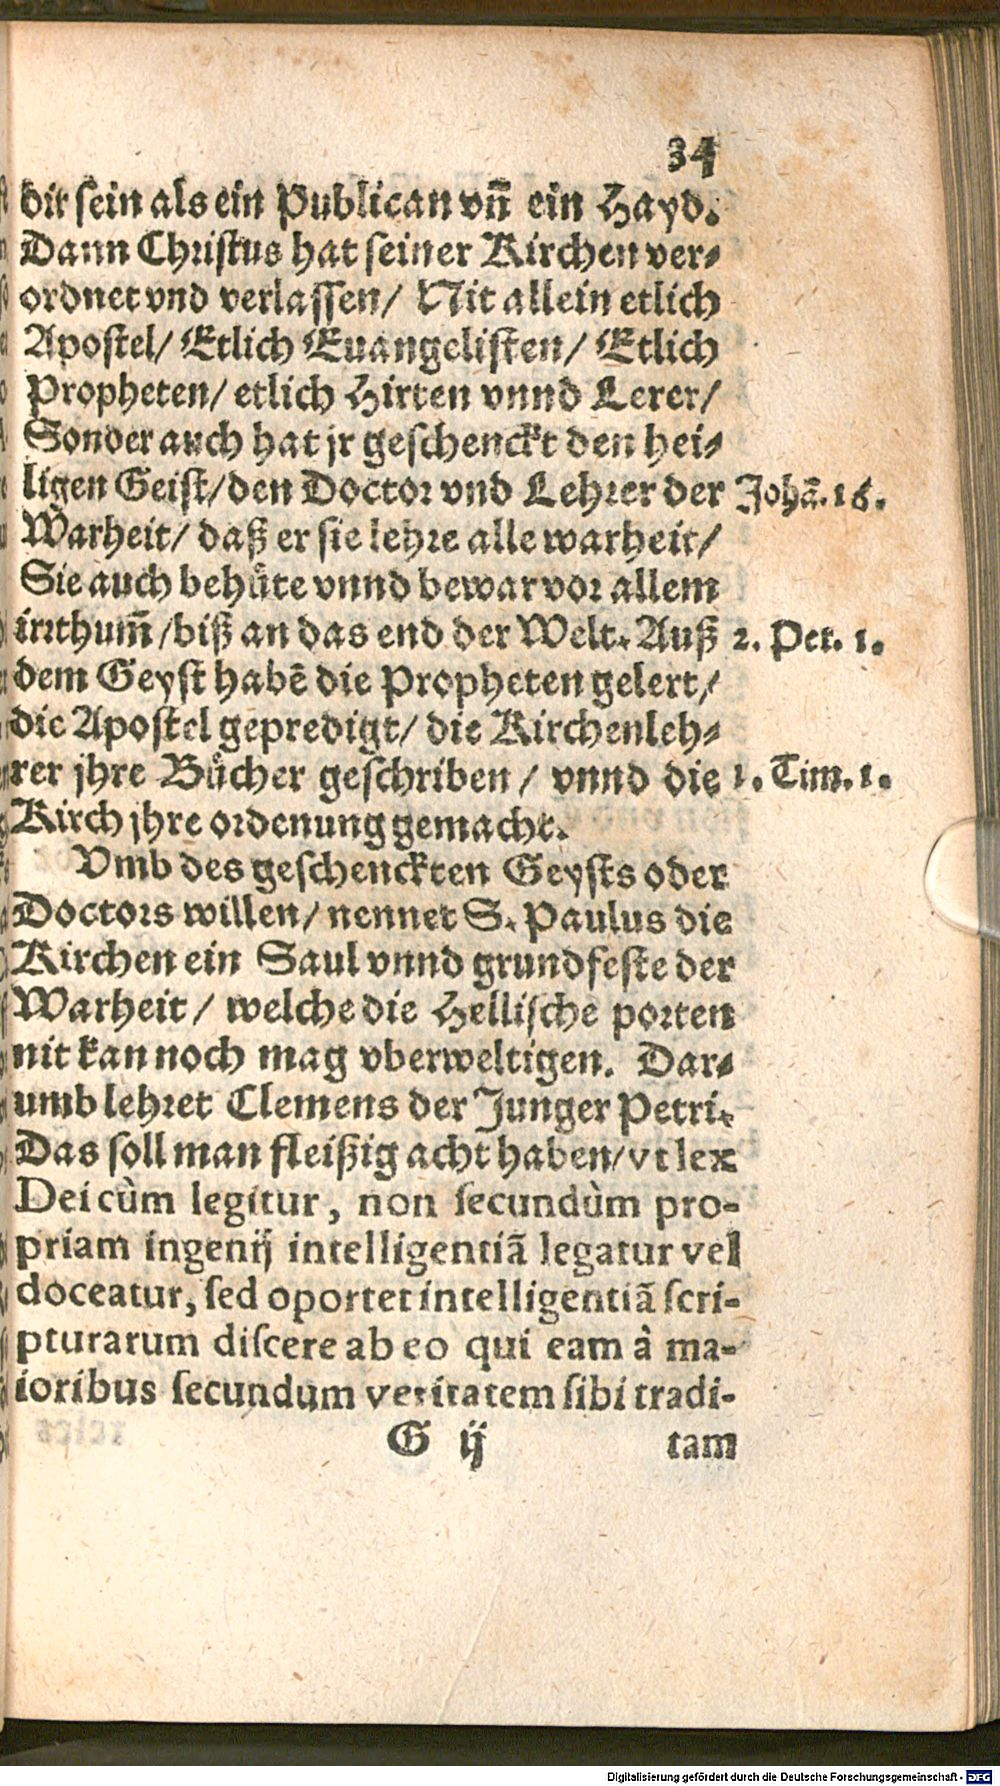 34
dir sein als ein Publican vñ ein Hayd.
Dann Christus hat seiner Kirchen ver-
ordnet vnd verlassen/ Nit allein etlich
Apostel/ Etlich Euangelisten/ Etlich
Propheten/ etlich Hirten vnnd Lerer/
Sonder auch hat jr geschenckt den hei-
ligen Geist/ den Doctor vnd Lehrer der
Johã. 16.
Warheit/ daß er sie lehre alle warheit/
Sie auch behüte vnnd bewar vor allem
irrthum̃/ biß an das end der Welt. Auß
2. Pet. 1.
dem Geyst habẽ die Propheten gelert/
die Apostel gepredigt/ die Kirchenleh-
rer jhre Bücher geschriben/ vnnd die
1. Tim. 1.
Kirch jhre ordenung gemacht.
Vmb des geschenckten Geysts oder
Doctors willen/ nennet S. Paulus die
Kirchen ein Saul vnnd grundfeste der
Warheit/ welche die Hellische porten
nit kan noch mag vberweltigen. Dar-
umb lehret Clemens der Junger Petri.
Das soll man fleißig acht haben/ vt lex
Dei cùm legitur, non secundùm pro-
priam ingenij intelligentiã legatur vel
doceatur, sed oportet intelligentiã scri-
pturarum discere ab eo qui eam à ma-
ioribus secundum veritatem sibi tradi-
G ij
tam
Digitalisierung gefördert durch die Deutsche Forschungsgemeinschaft - DFG